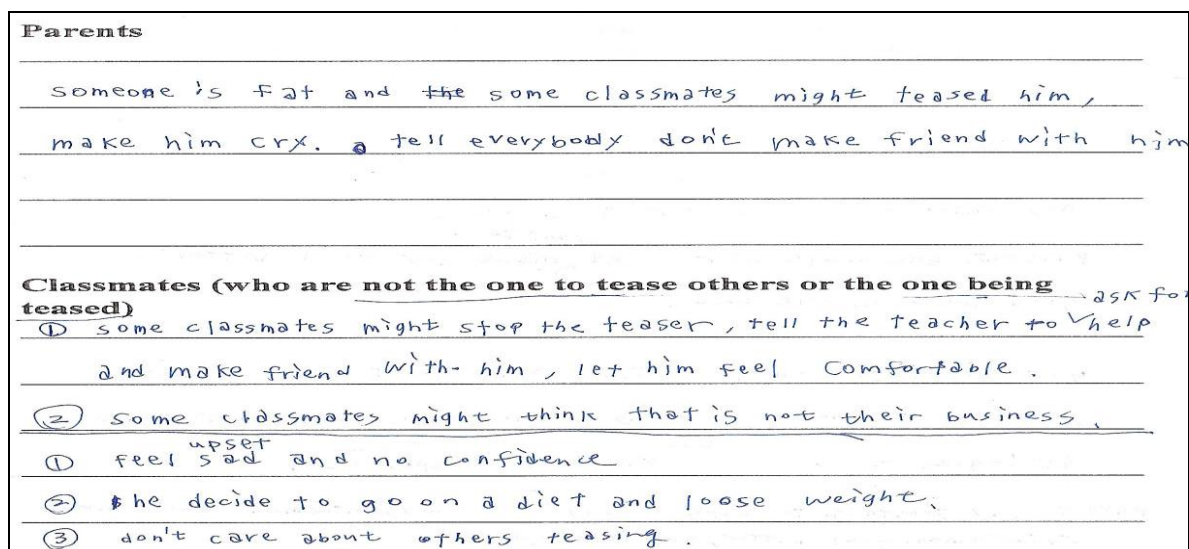 Parents
someone is fat and the some classmates might teased him,
make him cry. tell everybody don't make friend with him
Classmates (who are not the one to tease others or the one being
teased)
ask for
① some classmates might stop the teaser, tell the teacher to help
and make friend with him, let him feel comfortable.
② some classmates might think that is not their business.
upset
① feel sad and no confidence
② he decide to go on a diet and loose weight.
③ don't care about others teasing.